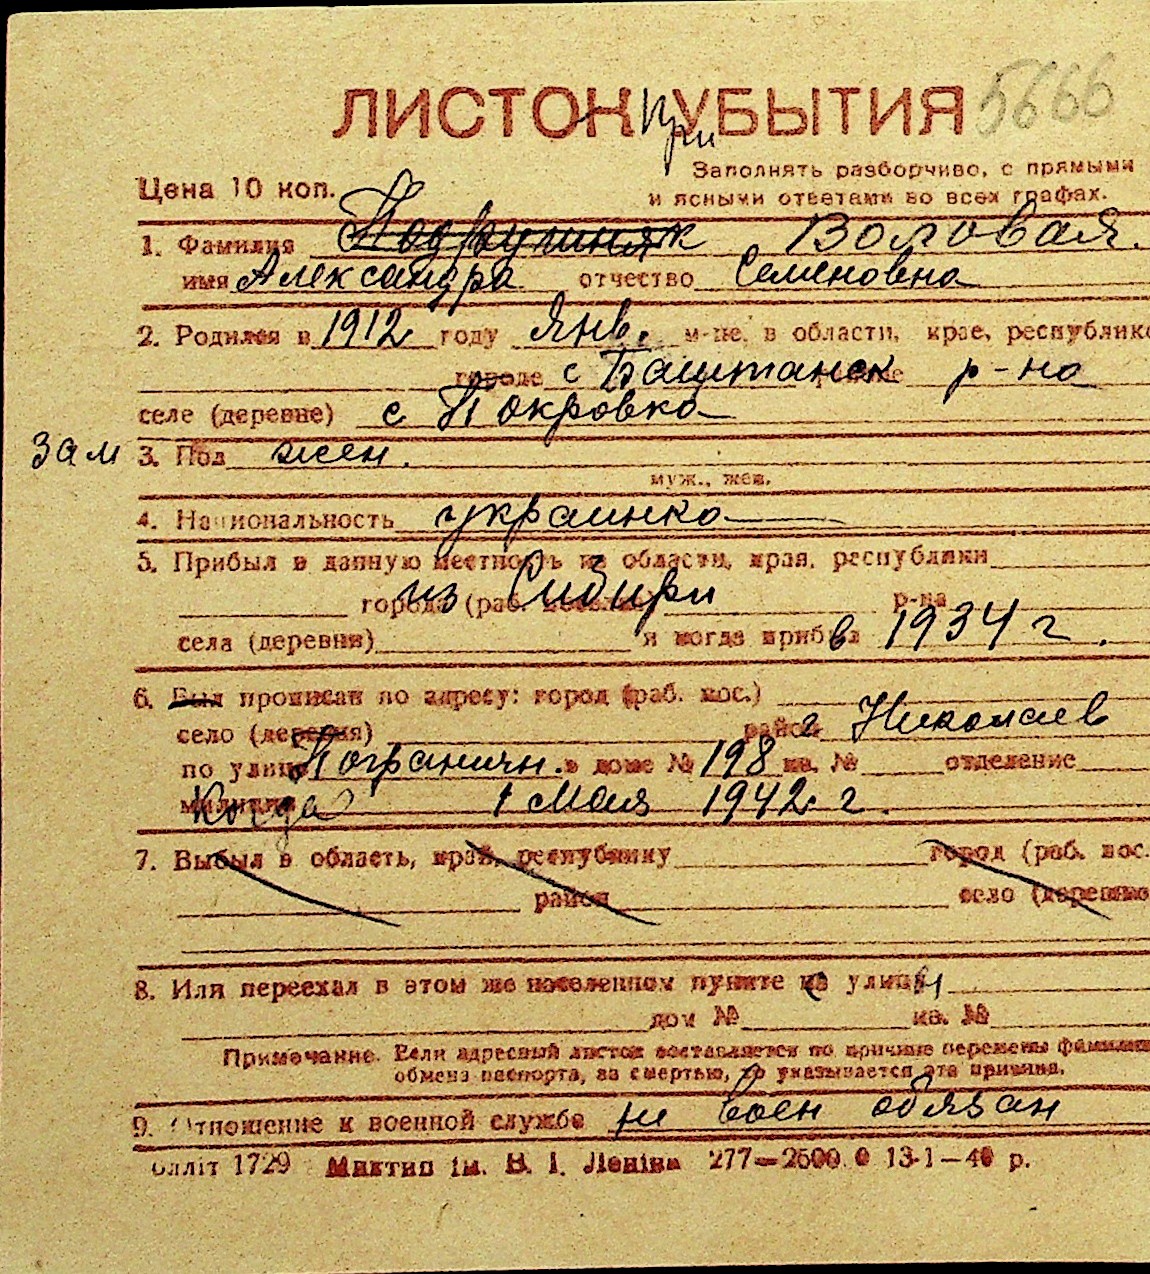 5666
ЛИСТОК при УБЫТИЯ
Заполнять разборчиво, с прямыми
Цена 10 коп. и ясными ответами во всех графах.
1. Фамилия Воловая.
имя Александра отчество Семеновна
2. Родился в 1912 году янв. м-це, в области, крае, республике
городе с Баштанск р-на
селе (деревне) с Покровка
зам 3. Пол жен.
муж., жен.
4. Национальность украинка
5. Прибыл в данную местность из области, края, республики
города (раб. из Сибири р-на
села (деревни) и когда прибыл в 1934 г.
6. Был прописан по адресу: город (раб. пос.)
село (деревня) район г Николаев
по улице Пограничн. в доме № 198 кв. № отделение
милиции Когда 1 мая 1942 г.
7. Выбыл в область, край, республику город (раб. пос.
район село (деревню
8. Или переехал в этом же населенном пункте на улицу
дом № кв. №
Примечание. Если адресный листок составляется по причине перемены фамилии
обмена паспорта, за смертью, то указывается эта причина.
9. Отношение к военной службе не воен обязан
Оллiт 1729 Миктип iм. В. I. Ленiна 277—2500.0 13-1—40 р.